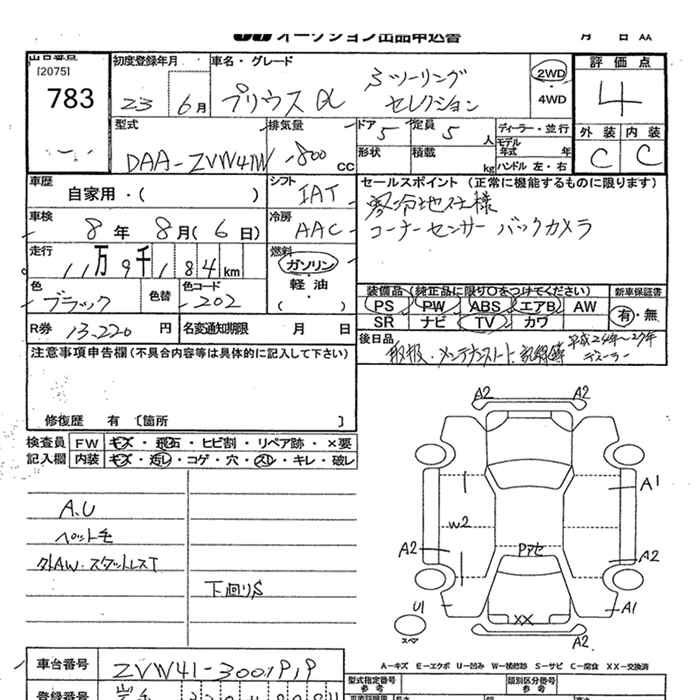 オークション出品申込書
月 日
[2075]
783
初度登録年月
23 6月
車名・グレード
プリウスα
Sツーリング
セレクション
2WD
・
4WD
評価点
4
外装 内装
C C
型式
DAA-ZVW41W
排気量
1800
CC
ドア 5 定員 5 人
形状 積載 kg
ディーラー・並行
モデル年式 年
ハンドル 左・右
車歴
自家用・( )
シフト
IAT
セールスポイント (正常に機能するものに限ります)
寒冷地仕様
コーナーセンサー バックカメラ
車検
8年 8月(6日)
冷房
AAC
走行
11万9千184km
燃料
ガソリン
・
軽・油
・
( )
色
ブラック
色替
色コード
202
装備品 (純正品に限り○をつけてください)
PS PW ABS エアB AW
SR ナビ TV カワ
新車保証書
有・無
R券 13,220円
名変通知期限 月 日
後日品
取扱・メンテナンスノート、記録簿 平成24年~29年
ディーラー
注意事項申告欄(不具合内容等は具体的に記入して下さい)
修復歴 有 〔箇所 〕
検査員
記入欄
FW キズ・飛石・ヒビ割・リペア跡・×要
内装 キズ・汚レ・コゲ・穴・スレ・キレ・破レ
A.U
ペット毛
外AW・スタットレスT
下回りS
A2 A2
A1
W2
Pアセ
A2 A2
U1 A1
XX
スペア
A2
A-キズ E-エクボ U-凹み W-補修跡 S-サビ C-腐食 XX-交換済
車台番号
ZVW41-3001919
型式指定番号
参考
類別区分番号
参考
登録番号
岩手